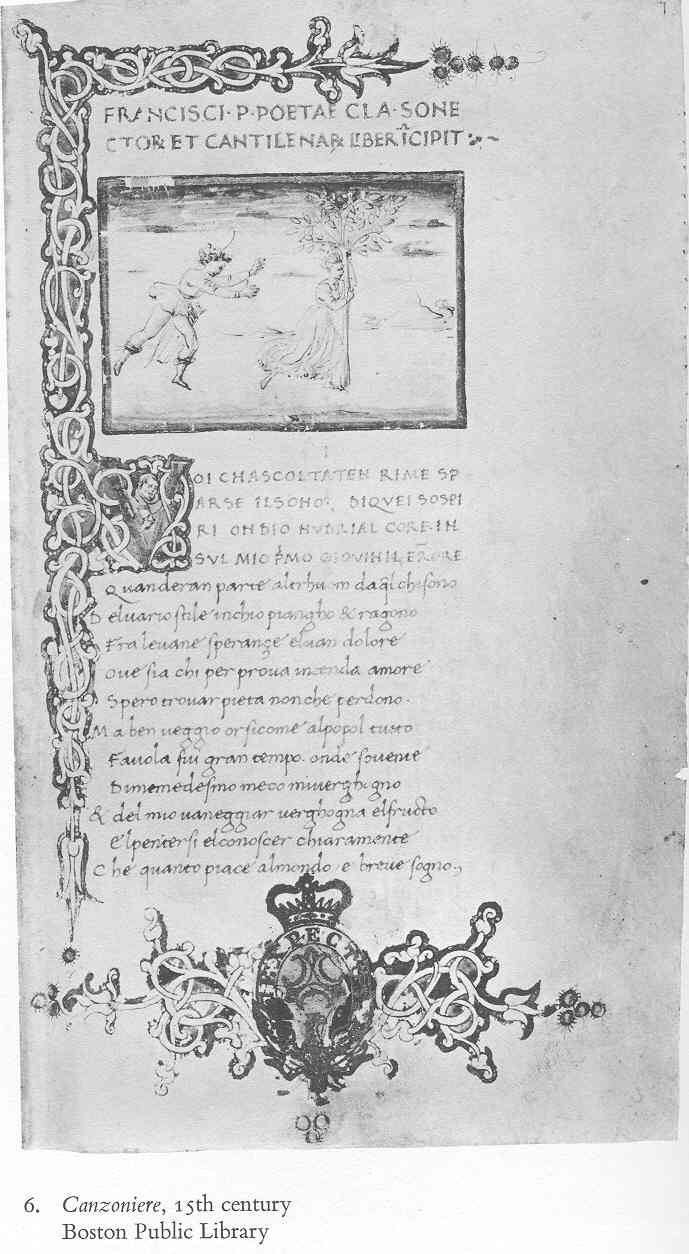 FRANCISCI·P·POETAE CLA·SONE
CTOꝜ ET CANTILENAꝜ LIBER ĪCIPIT
VOI CHASCOLTATEN RIME SP
ARSE ILSONO: DIQVEI SOSPI
RI ONDIO NVDRIAL CORE·IN
SVL MIO PͥMO GIOVINIL ERRORE
Quanderan parte altrhuom daql chisono
Delvario stile inchio piangho & ragono
Fra levane speranze elvan dolore
Ove sia chi per prova intenda amore
Spero trovar pieta nonche perdono.
Ma ben veggio orsicome alpopol tutto
Favola fui gran tempo. onde sovente
Dimemedesmo meco miverghogno
& del mio vaneggiar verghogna elfructo
Elpentersi elconoscer chiaramente
Che quanto piace almondo e breve sogno.,
6. Canzoniere, 15th century
Boston Public Library